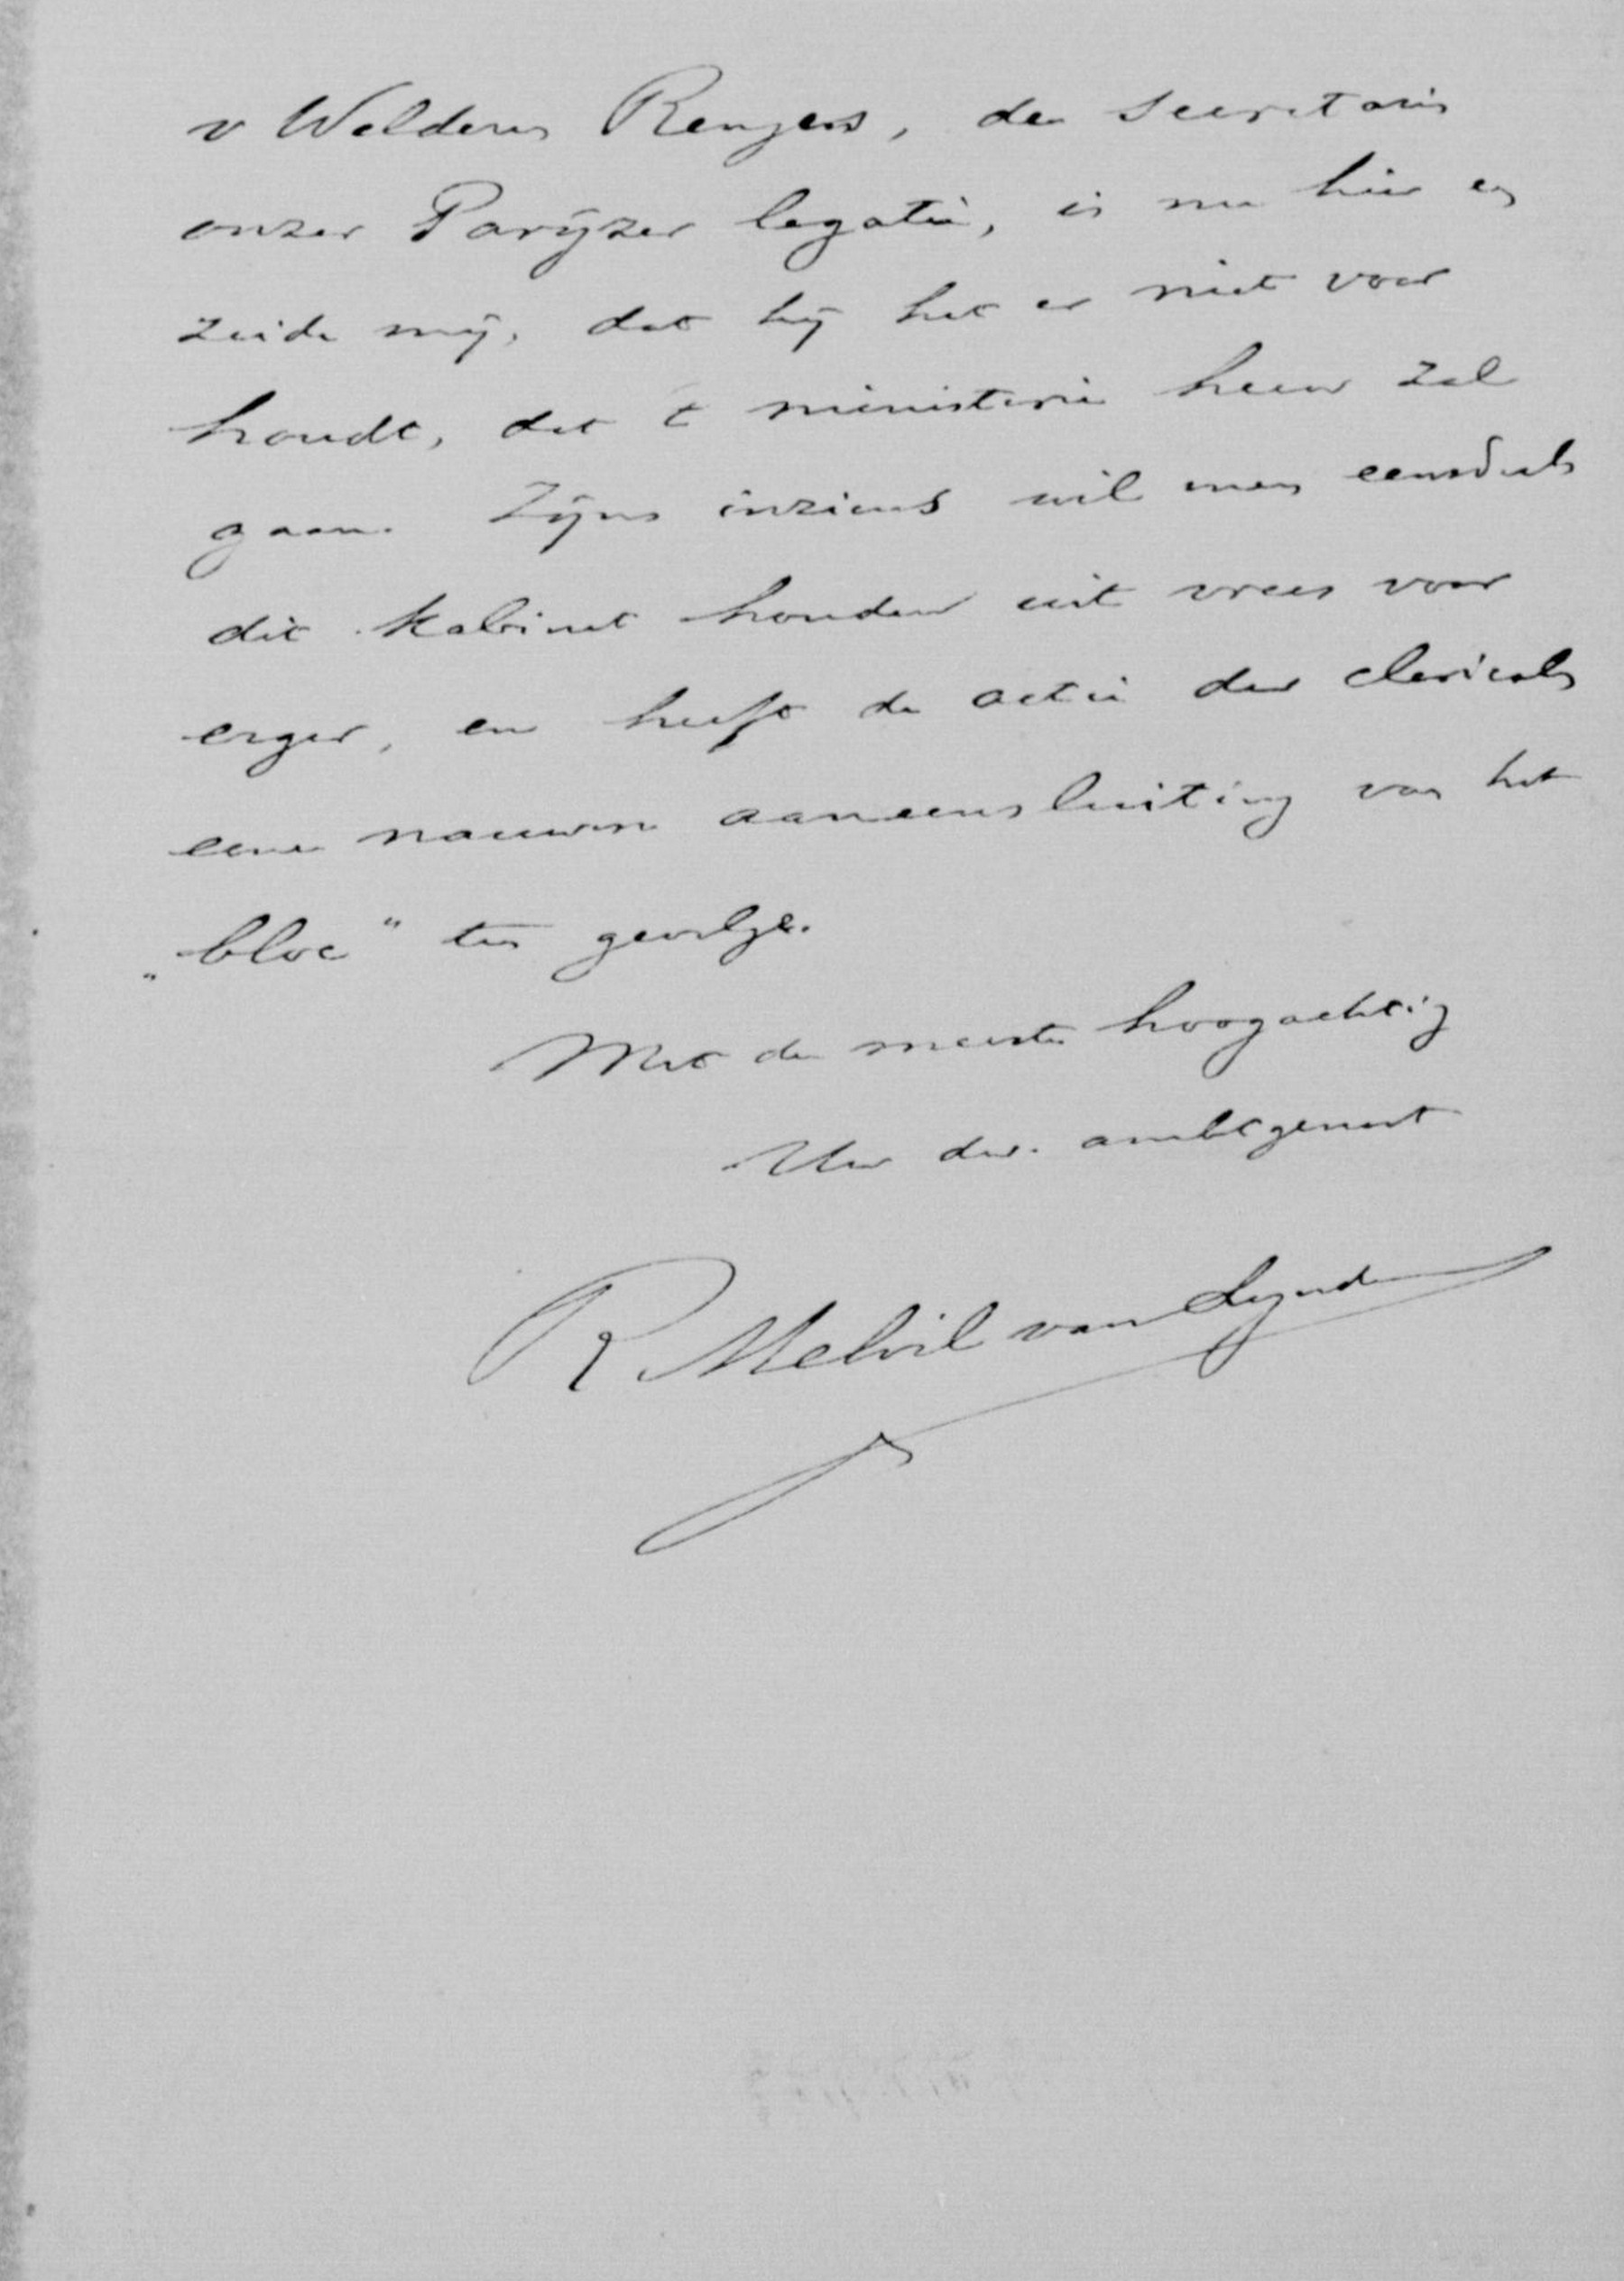 v Welderen Rengers, de secretaris
onzer Paryzer legatie, is nu hier en
zeide my, dat hy het er niet voor
houdt, dat 't ministerie heen zal
gaan. Zyns inziens wil men eensdeels
dit kabinet houden uit vrees voor
erger, en heeft de actie der clericals
eene nauwere aaneensluiting van het
„bloc" ten gevolge.
Met de meeste hoogachting
Uw dw. ambtgenoot
R Melvil van Lynden